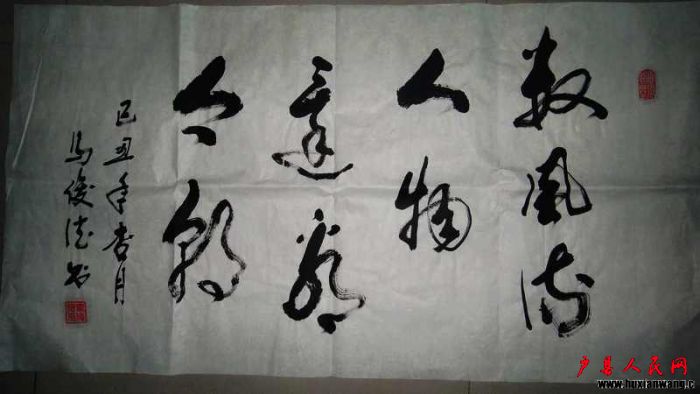 数風流
人物
還看
今朝
己丑年杏月
馬俊德書
户县人民网
www.huxianwang.c